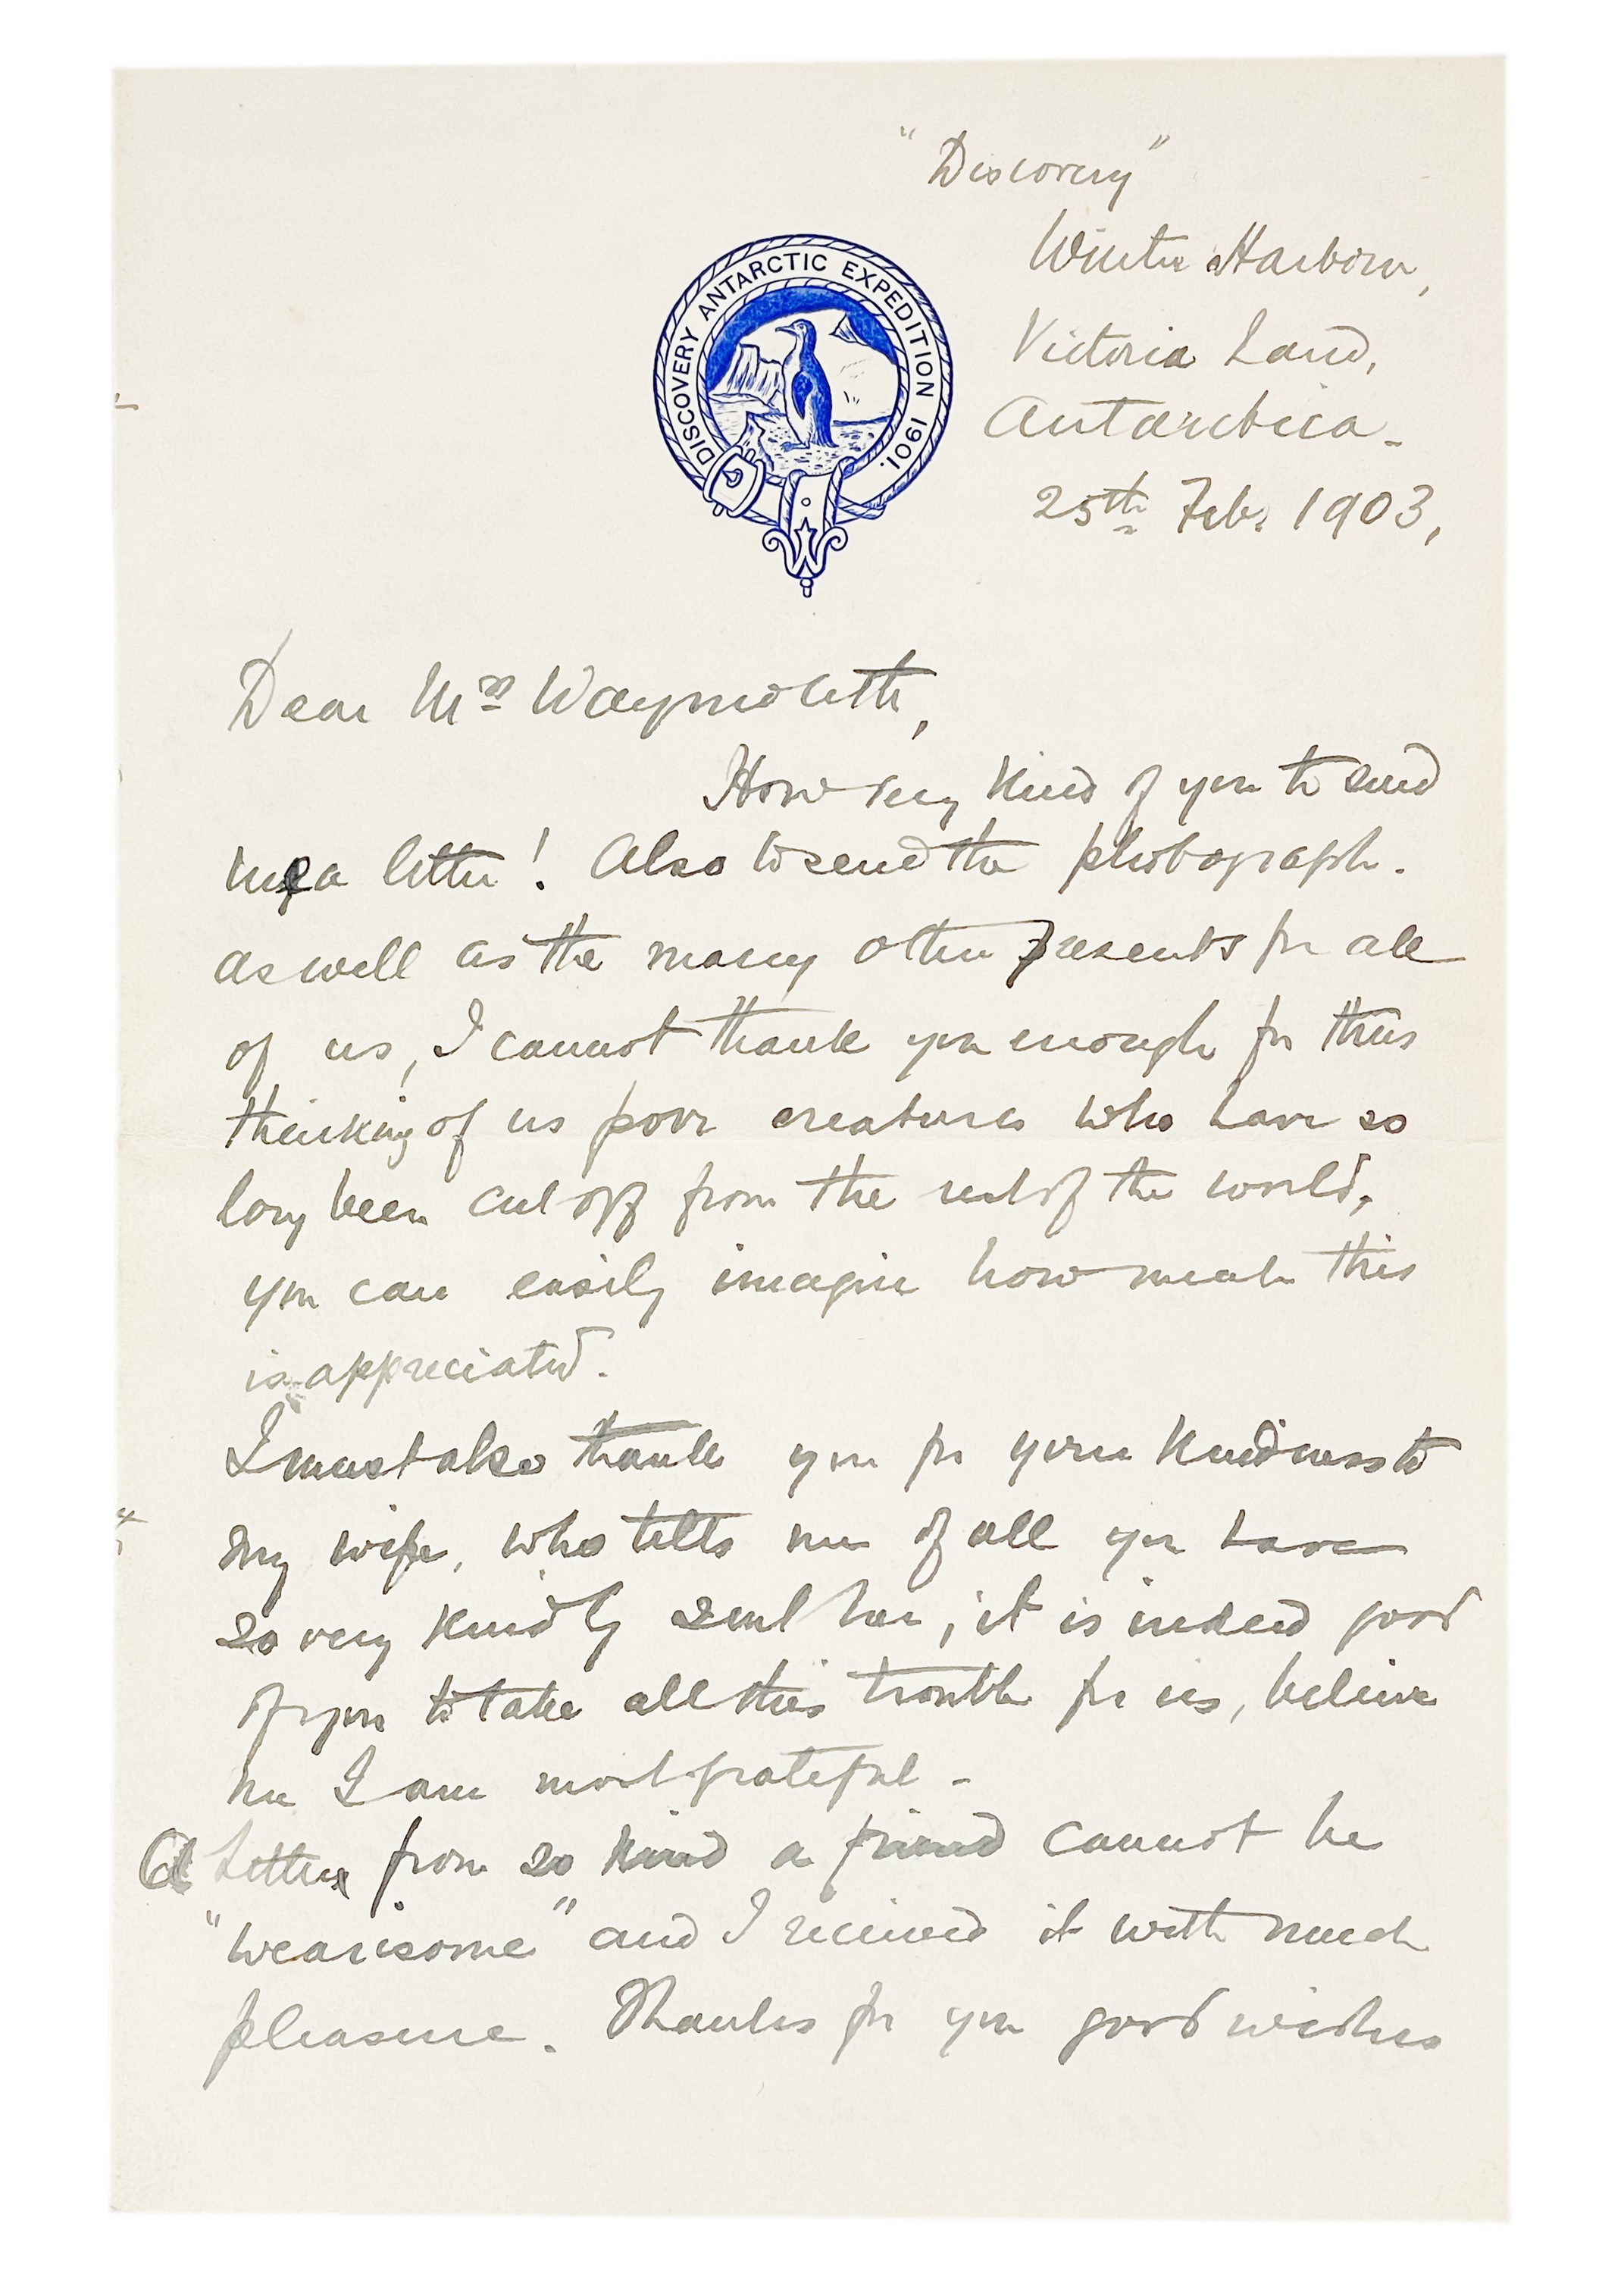 "Discovery"
Winter Harbour,
Victoria Land,
Antarctica -
25th Feb. 1903,
DISCOVERY ANTARCTIC EXPEDITION 1901.
Dear Mrs
How very kind of you to send
me a letter! Also to send the photograph.
as well as the many other presents for all
of us, I cannot thank you enough for thus
thinking of us poor creatures who have so
long been cut off from the rest of the world,
you can easily imagine how much this
is appreciated.
I must also thank you for your kindness to
my wife, who tells me of all you have
so very kindly sent her, it is indeed good
of you to take all this trouble for us, believe
me I am most grateful -
A Letter from so kind a friend cannot be
"wearisome" and I received it with much
pleasure. Thanks for your good wishes